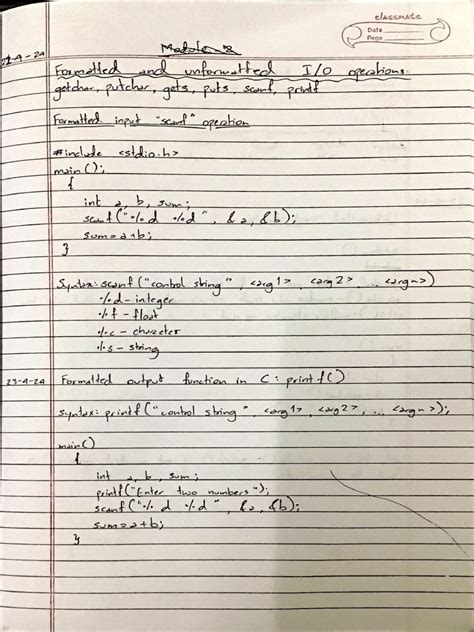 classmate
Date
Page
Module 2
Formatted and unformatted I/O operations:
getchar, putchar, gets, puts, scanf, printf
Formatted input "scanf" operation
#include <stdio.h>
main();
{
int a, b, sum;
scanf("%d %d", &a, &b);
sum=a+b;
}
Syntax: scanf("control string", <arg1>, <arg2>, ... <argn>)
%d - integer
%f - float
%c - character
%s - string
23-4-24 Formatted output function in C: printf()
Syntax: printf("control string", <arg1>, <arg2>, ... <argn>);
main()
{
int a, b, sum;
printf("Enter two numbers");
scanf("%d %d", &a, &b);
sum=a+b;
}